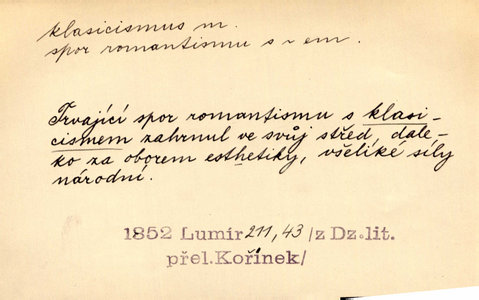 klasicismus m.
spor romantismu s ~ em.
Trvající spor romantismu s klasi-
cismem zahrnul ve svůj střed, dale-
ko za oborem esthetiky, všeliké síly
národní.
1852 Lumír 211, 43 /z Dz.lit.
přel.Kořínek/